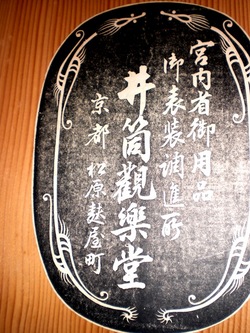 宮内省御用品
御表装調進所
井筒觀樂堂
京都 松原麩屋町